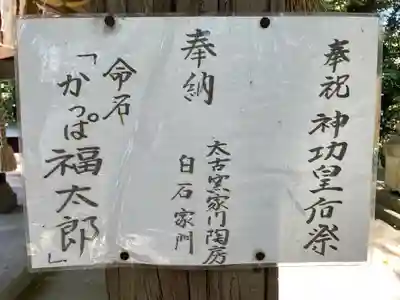 奉祝 神功皇后祭
奉納
太古窯家川陶房
白石家門
命石
「かっぱ福太郎」